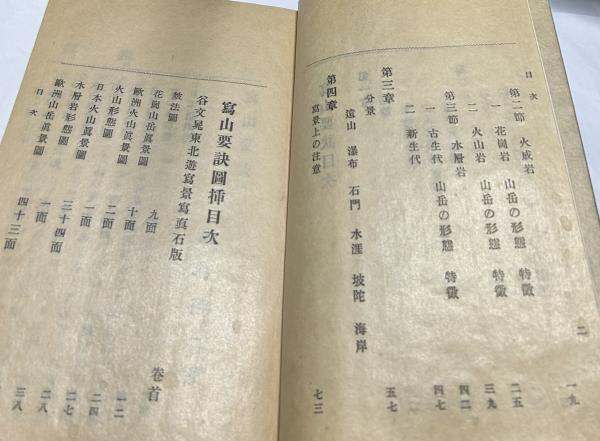 目次 二
第二節 火成岩 一九
一 花崗岩 山岳の形態 特徴 二五
二 火山岩 山岳の形態 特徴 三九
第三節 水層岩 四二
一 古生代 山岳の形態 特徴 四七
二 新生代
第三章
分景 五七
遠山 瀑布 石門 水涯 坡陀 海岸
第四章
寫景上の注意 七三
寫山要訣圖挿目次
谷文晁東北遊寫景寫眞石版 卷首
皴法圖 九面 一二
花崗山岳眞景圖 十面 二四
歐洲火山眞景圖 二面 二七
火山形態圖 一面 二八
日本火山眞景圖 三十四面 三八
水層岩形態圖 一面
歐洲山岳眞景圖 四十三面
目次